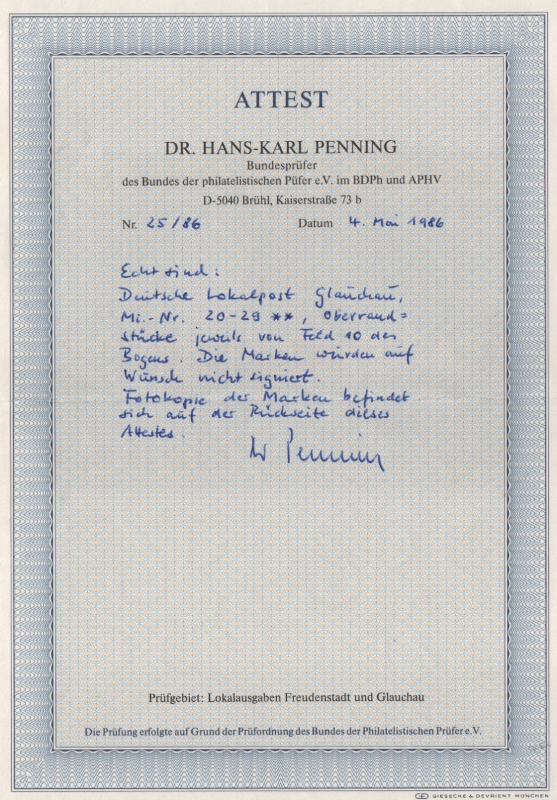 ATTEST
DR. HANS-KARL PENNING
Bundesprüfer
des Bundes der philatelistischen Püfer e.V. im BDPh und APHV
D-5040 Brühl, Kaiserstraße 73 b
Nr. 25/86 Datum 4. Mai 1986
Echt sind:
Deutsche Lokalpost Glauchau,
Mi.-Nr. 20-29 **, Oberrand=
stücke jeweils von Feld 10 des
Bogens. Die Marken wurden auf
Wunsch nicht signiert.
Fotokopie der Marken befindet
sich auf der Rückseite dieses
Attestes.
Dr Penning
Prüfgebiet: Lokalausgaben Freudenstadt und Glauchau
Die Prüfung erfolgte auf Grund der Prüfordnung des Bundes der Philatelistischen Prüfer e.V.
GIESECKE & DEVRIENT MÜNCHEN